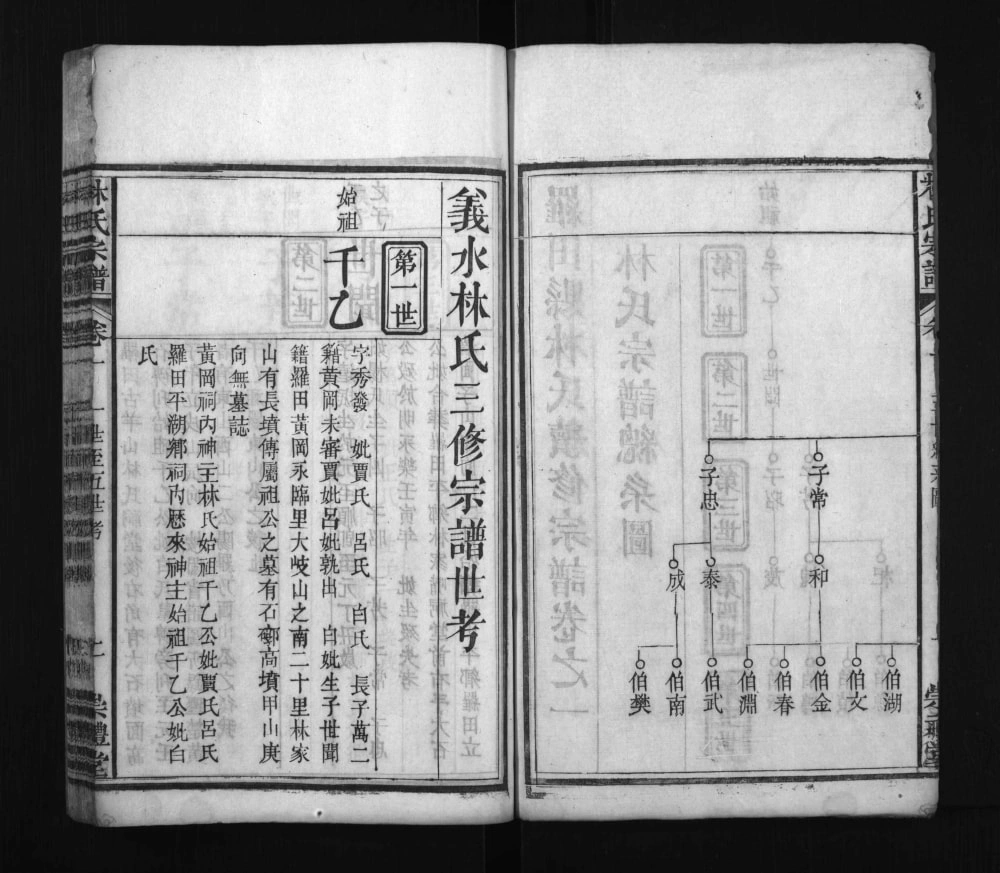 子常
子忠
和
泰
成
伯湖
伯文
伯金
伯春
伯淵
伯武
伯南
伯樊
義水林氏三修宗譜世考
第一世
始祖
千乙
字秀發　妣賈氏　呂氏　白氏　長子萬二
籍黃岡未審賈妣呂妣孰出　白妣生子世聞
籍羅田黃岡永臨里大岐山之南二十里林家
山有長墳傳屬祖公之墓有石鄿高墳甲山庚
向無墓誌
黃岡祠內神主林氏始祖千乙公妣賈氏呂氏
羅田平湖鄉祠內歷來神主始祖千乙公妣白
氏
林氏宗譜
卷一
一世至五世考
七
崇禮堂